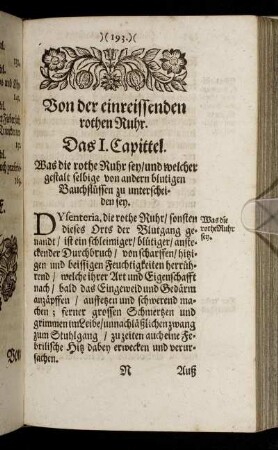 )( 193. )(
Von der einreissenden
rothen Ruhr.
Das I. Capittel.
Was die rothe Ruhr sey/ und welcher
gestalt selbige von andern blutigen
Bauchflüssen zu unterschei-
den sey.
DYsenteria, die rothe Ruhr/ sonsten
dieses Orts der Blutgang ge-
nandt/ ist ein schleimiger/ blütiger/ anste-
ckender Durchbruch/ von scharffen/ hitzi-
gen und beissigen Feuchtigkeiten herrüh-
rend/ welche ihrer Art und Eigenschafft
nach/ bald das Eingeweid und Gedärm
anzäpffen/ aufetzen und schwerend ma-
chen; ferner grossen Schmertzen und
grimmen im Leibe/ unnachläßlichen zwang
zum Stuhlgang/ zu zeiten auch eine Fe-
brilische Hitz dabey erwecken und verur-
sachen.
Was die
rothe Ruhr
sey.
N
Auß